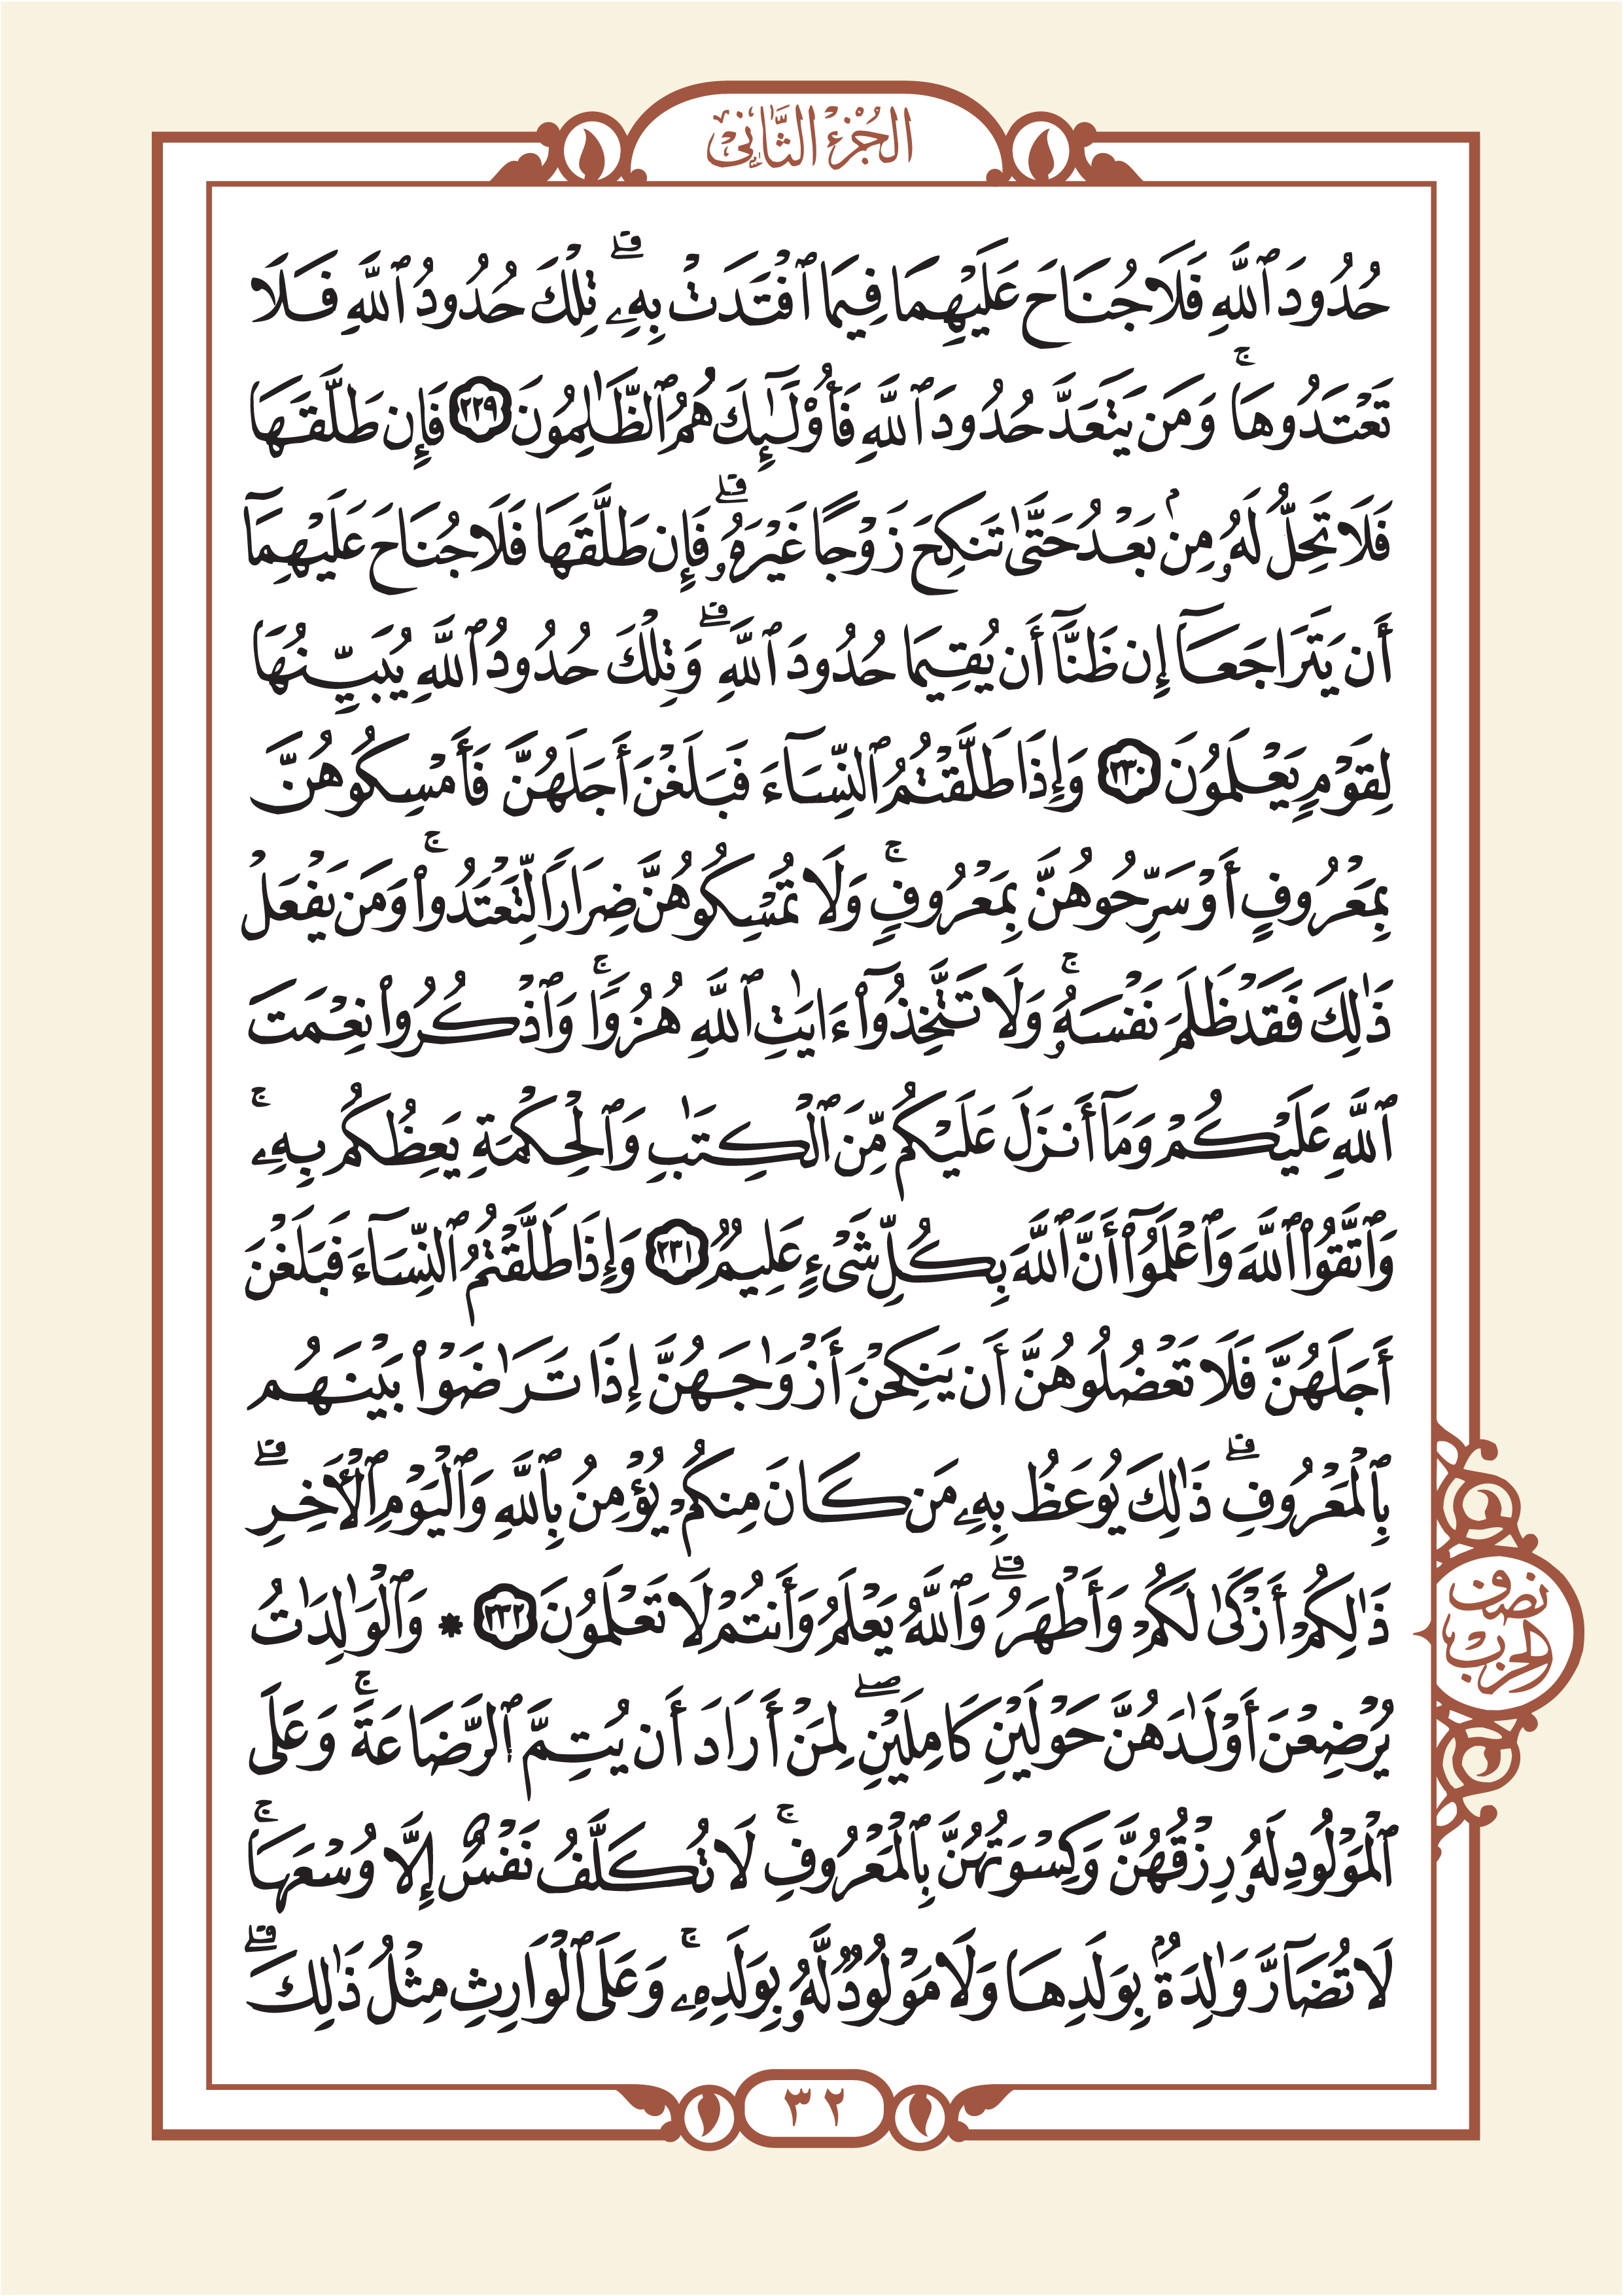 الجُزْءُ الثَّانِي
حُدُودَ ٱللَّهِ فَلَا جُنَاحَ عَلَيْهِمَا فِيمَا ٱفْتَدَتْ بِهِۦۗ تِلْكَ حُدُودُ ٱللَّهِ فَلَا
تَعْتَدُوهَاۚ وَمَن يَتَعَدَّ حُدُودَ ٱللَّهِ فَأُو۟لَـٰٓئِكَ هُمُ ٱلظَّـٰلِمُونَ ٢٢٩ فَإِن طَلَّقَهَا
فَلَا تَحِلُّ لَهُۥ مِنۢ بَعْدُ حَتَّىٰ تَنكِحَ زَوْجًا غَيْرَهُۥۗ فَإِن طَلَّقَهَا فَلَا جُنَاحَ عَلَيْهِمَآ
أَن يَتَرَاجَعَآ إِن ظَنَّآ أَن يُقِيمَا حُدُودَ ٱللَّهِۗ وَتِلْكَ حُدُودُ ٱللَّهِ يُبَيِّنُهَا
لِقَوْمٍ يَعْلَمُونَ ٢٣٠ وَإِذَا طَلَّقْتُمُ ٱلنِّسَآءَ فَبَلَغْنَ أَجَلَهُنَّ فَأَمْسِكُوهُنَّ
بِمَعْرُوفٍ أَوْ سَرِّحُوهُنَّ بِمَعْرُوفٍۚ وَلَا تُمْسِكُوهُنَّ ضِرَارًا لِّتَعْتَدُوا۟ۚ وَمَن يَفْعَلْ
ذَٰلِكَ فَقَدْ ظَلَمَ نَفْسَهُۥۚ وَلَا تَتَّخِذُوٓا۟ ءَايَـٰتِ ٱللَّهِ هُزُوًاۚ وَٱذْكُرُوا۟ نِعْمَتَ
ٱللَّهِ عَلَيْكُمْ وَمَآ أَنزَلَ عَلَيْكُم مِّنَ ٱلْكِتَـٰبِ وَٱلْحِكْمَةِ يَعِظُكُم بِهِۦۚ
وَٱتَّقُوا۟ ٱللَّهَ وَٱعْلَمُوٓا۟ أَنَّ ٱللَّهَ بِكُلِّ شَىْءٍ عَلِيمٌ ٢٣١ وَإِذَا طَلَّقْتُمُ ٱلنِّسَآءَ فَبَلَغْنَ
أَجَلَهُنَّ فَلَا تَعْضُلُوهُنَّ أَن يَنكِحْنَ أَزْوَٰجَهُنَّ إِذَا تَرَٰضَوْا۟ بَيْنَهُم
بِٱلْمَعْرُوفِۗ ذَٰلِكَ يُوعَظُ بِهِۦ مَن كَانَ مِنكُمْ يُؤْمِنُ بِٱللَّهِ وَٱلْيَوْمِ ٱلْـَٔاخِرِۗ
ذَٰلِكُمْ أَزْكَىٰ لَكُمْ وَأَطْهَرُۗ وَٱللَّهُ يَعْلَمُ وَأَنتُمْ لَا تَعْلَمُونَ ٢٣٢ * وَٱلْوَٰلِدَٰتُ
نصف
الحزب
يُرْضِعْنَ أَوْلَـٰدَهُنَّ حَوْلَيْنِ كَامِلَيْنِۖ لِمَنْ أَرَادَ أَن يُتِمَّ ٱلرَّضَاعَةَۚ وَعَلَى
ٱلْمَوْلُودِ لَهُۥ رِزْقُهُنَّ وَكِسْوَتُهُنَّ بِٱلْمَعْرُوفِۚ لَا تُكَلَّفُ نَفْسٌ إِلَّا وُسْعَهَاۚ
لَا تُضَآرَّ وَٰلِدَةٌۢ بِوَلَدِهَا وَلَا مَوْلُودٌ لَّهُۥ بِوَلَدِهِۦۚ وَعَلَى ٱلْوَارِثِ مِثْلُ ذَٰلِكَۗ
٣٢